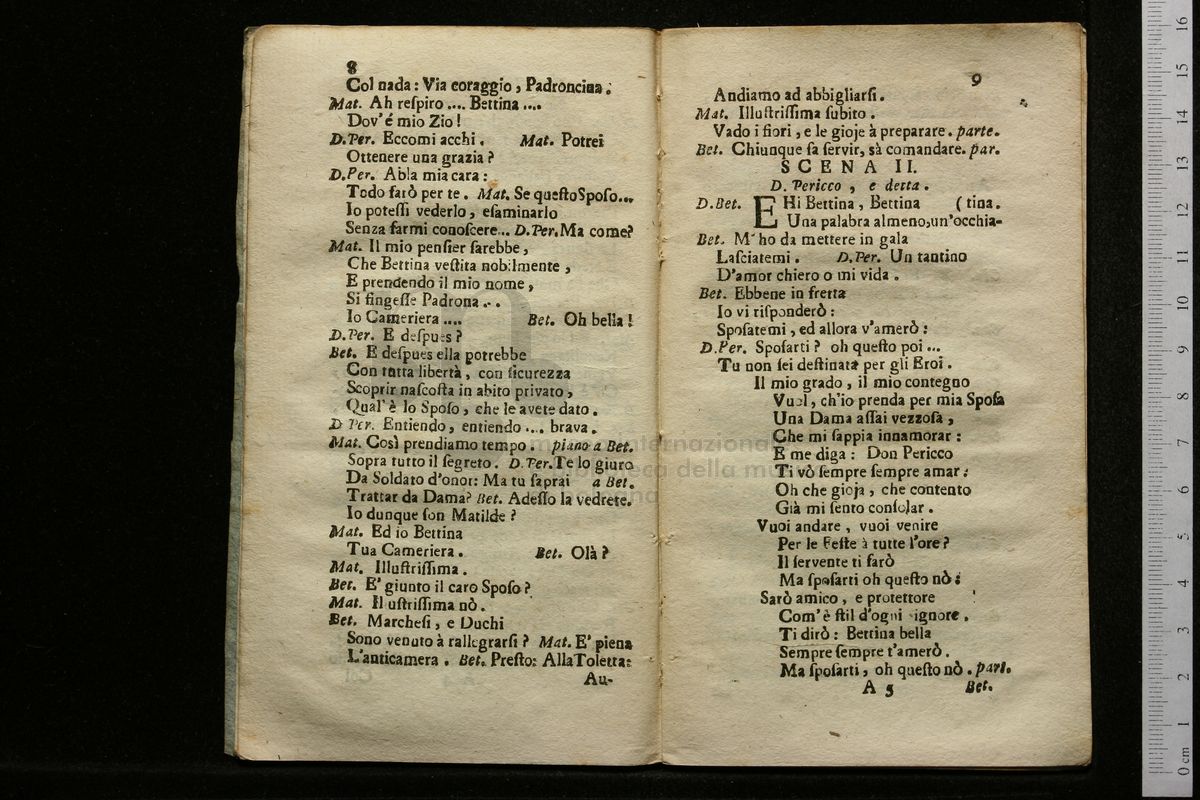 8
Col nada: Via coraggio, Padroncina.
Mat. Ah reſpiro .... Bettina ....
Dov'é mio Zio!
D.Per. Eccomi acchi. Mat. Potrei
Ottenere una grazia?
D.Per. Abla mia cara:
Todo farò per te. Mat. Se queſto Spoſo...
Io poteſſi vederlo, eſaminarlo
Senza farmi conoſcere... D.Per. Ma come?
Mat. Il mio penſier ſarebbe,
Che Bettina veſtita nobilmente,
E prendendo il mio nome,
Si fingeſſe Padrona ...
Io Cameriera .... Bet. Oh bella!
D.Per. E deſpues?
Bet. E deſpues ella potrebbe
Con tutta libertà, con ſicurezza
Scoprir naſcoſta in abito privato,
Qual'è lo Spoſo, che le avete dato.
D Per. Entiendo, entiendo .... brava.
Mat. Così prendiamo tempo. piano a Bet.
Sopra tutto il ſegreto. D.Per. Te lo giuro
Da Soldato d'onor: Ma tu ſaprai a Bet.
Trattar da Dama? Bet. Adeſſo la vedrete.
Io dunque ſon Matilde?
Mat. Ed io Bettina
Tua Cameriera. Bet. Olà?
Mat. Illuſtriſſima.
Bet. E' giunto il caro Spoſo?
Mat. Il uſtriſſima nò.
Bet. Marcheſi, e Duchi
Sono venuto à rallegrarſi? Mat. E' piena
L'anticamera. Bet. Preſto: Alla Toletta:
Au-
9
Andiamo ad abbigliarſi.
Mat. Illuſtriſſima ſubito.
Vado i fiori, e le gioje à preparare. parte.
Bet. Chiunque ſa ſervir, sà comandare. par.
SCENA II.
D. Pericco, e detta.
D.Bet. EHi Bettina, Bettina (tina.
Una palabra almeno, un'occhia-
Bet. M'ho da mettere in gala
Laſciatemi. D.Per. Un tantino
D'amor chiero o mi vida.
Bet. Ebbene in fretta
Io vi riſponderò:
Spoſatemi, ed allora v'amerò:
D.Per. Spoſarti? oh queſto poi ...
Tu non ſei deſtinata per gli Eroi.
Il mio grado, il mio contegno
Vuol, ch'io prenda per mia Spoſa
Una Dama aſſai vezzoſa,
Che mi ſappia innamorar:
E me diga: Don Pericco
Ti vò ſempre ſempre amar:
Oh che gioja, che contento
Già mi ſento conſolar.
Vuoi andare, vuoi venire
Per le Feſte à tutte l'ore?
Il ſervente ti farò
Ma ſpoſarti oh queſto nò:
Sarò amico, e protettore
Com'è ſtil d'ogni ſignore.
Ti dirò: Bettina bella
Sempre ſempre t'amerò.
Ma ſpoſarti, oh queſto nò. part.
A 5 Bet.